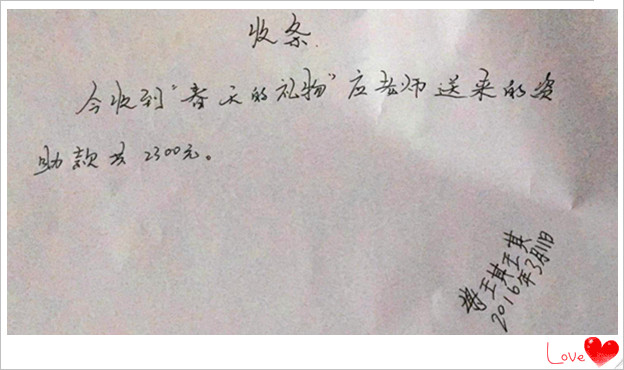 收条
今收到"春天的礼物"应老师送来的资
助款共2300元。
2016年3月11日
Love